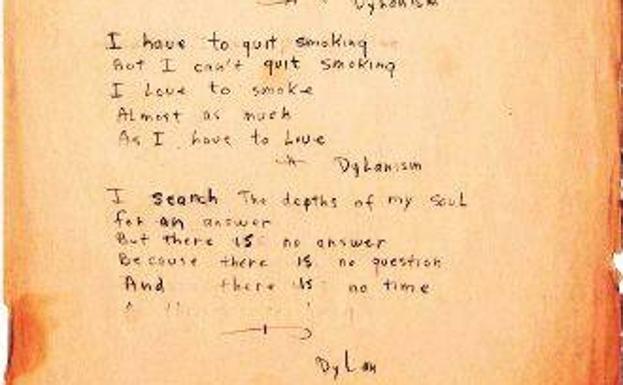 Dylanism
I have to quit smoking
But I can't quit smoking
I Love to smoke
Almost as much
As I have to Love
Dylanism
I search The depths of my SouL
for an answer
But there is no answer
Because there is no question
And there is no time
DyLan